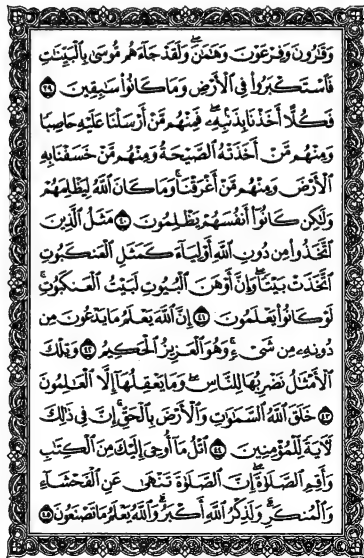 وَقَٰرُونَ وَفِرْعَوْنَ وَهَٰمَٰنَ ۖ وَلَقَدْ جَآءَهُم مُّوسَىٰ بِٱلْبَيِّنَٰتِ
فَٱسْتَكْبَرُوا۟ فِى ٱلْأَرْضِ وَمَا كَانُوا۟ سَٰبِقِينَ ﴿٣٩﴾
فَكُلًّا أَخَذْنَا بِذَنۢبِهِۦ ۖ فَمِنْهُم مَّنْ أَرْسَلْنَا عَلَيْهِ حَاصِبًا
وَمِنْهُم مَّنْ أَخَذَتْهُ ٱلصَّيْحَةُ وَمِنْهُم مَّنْ خَسَفْنَا بِهِ
ٱلْأَرْضَ وَمِنْهُم مَّنْ أَغْرَقْنَا ۚ وَمَا كَانَ ٱللَّهُ لِيَظْلِمَهُمْ
وَلَٰكِن كَانُوٓا۟ أَنفُسَهُمْ يَظْلِمُونَ ﴿٤٠﴾ مَثَلُ ٱلَّذِينَ
ٱتَّخَذُوا۟ مِن دُونِ ٱللَّهِ أَوْلِيَآءَ كَمَثَلِ ٱلْعَنكَبُوتِ
ٱتَّخَذَتْ بَيْتًا ۖ وَإِنَّ أَوْهَنَ ٱلْبُيُوتِ لَبَيْتُ ٱلْعَنكَبُوتِ ۖ
لَوْ كَانُوا۟ يَعْلَمُونَ ﴿٤١﴾ إِنَّ ٱللَّهَ يَعْلَمُ مَا يَدْعُونَ مِن
دُونِهِۦ مِن شَىْءٍ ۚ وَهُوَ ٱلْعَزِيزُ ٱلْحَكِيمُ ﴿٤٢﴾ وَتِلْكَ
ٱلْأَمْثَٰلُ نَضْرِبُهَا لِلنَّاسِ ۖ وَمَا يَعْقِلُهَآ إِلَّا ٱلْعَٰلِمُونَ
﴿٤٣﴾ خَلَقَ ٱللَّهُ ٱلسَّمَٰوَٰتِ وَٱلْأَرْضَ بِٱلْحَقِّ ۚ إِنَّ فِى ذَٰلِكَ
لَءَايَةً لِّلْمُؤْمِنِينَ ﴿٤٤﴾ ٱتْلُ مَآ أُوحِىَ إِلَيْكَ مِنَ ٱلْكِتَٰبِ
وَأَقِمِ ٱلصَّلَوٰةَ ۖ إِنَّ ٱلصَّلَوٰةَ تَنْهَىٰ عَنِ ٱلْفَحْشَآءِ
وَٱلْمُنكَرِ ۗ وَلَذِكْرُ ٱللَّهِ أَكْبَرُ ۗ وَٱللَّهُ يَعْلَمُ مَا تَصْنَعُونَ ﴿٤٥﴾